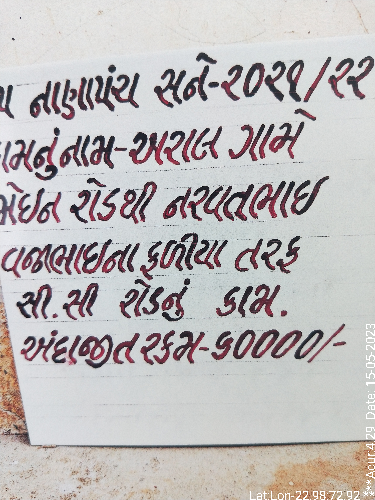 ૫ નાણાપંચ સને-૨૦૨૧/૨૨
કામનુંનામ-અરાલ ગામે
મેઇન રોડથી નરવતભાઇ
વજાભાઇના ફળીયા તરફ
સી.સી રોડનું કામ.
અંદાજીત રકમ-૬૦૦૦૦/-
Lat Lon-22.98,72.92 ***Acur 4.29 Date: 15-05-2023